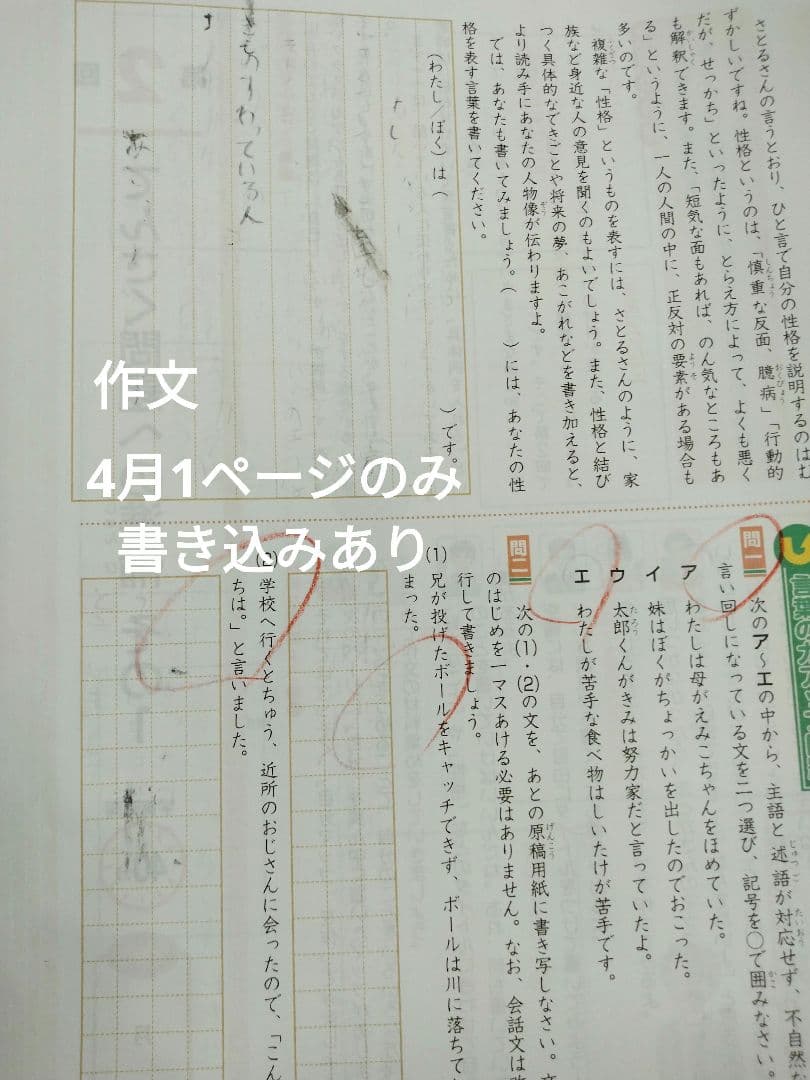 さとるさんの言うとおり、ひと言で自分の性格を説明するのはむ
ずかしいですね。性格というのは、「慎重な反面、臆病」「行動的
だが、せっかち」といったように、とらえ方によって、よくも悪く
も解釈できます。また、「短気な面もあれば、のん気なところもあ
る」というように、一人の人間の中に、正反対の要素がある場合も
多いのです。
複雑な「性格」というものを表すには、さとるさんのように、家
族など身近な人の意見を聞くのもよいでしょう。また、性格と結び
つく具体的なできごとや将来の夢、あこがれなどを書き加えると、
より読み手にあなたの人物像が伝わりますよ。
では、あなたも書いてみましょう。（　　）には、あなたの性
格を表す言葉を書いてください。
（わたし／ぼく）は（　　）です。
っている人
作文
4月1ページのみ
書き込みあり
問一
次のア〜エの中から、主語と述語が対応せず、不自然な
言い回しになっている文を二つ選び、記号を○で囲みなさい。
ア わたしは母がえみこちゃんをほめていた。
イ 妹はぼくがちょっかいを出したのでおこった。
ウ 太郎くんがきみは努力家だと言っていたよ。
エ わたしが苦手な食べ物はしいたけが苦手です。
問二
次の(1)・(2)の文を、あとの原稿用紙に書き写しなさい。
のはじめを一マスあける必要はありません。なお、会話文は改
行して書きましょう。
(1) 兄が投げたボールをキャッチできず、ボールは川に落ちて
まった。
(2) 学校へ行くとちゅう、近所のおじさんに会ったので、「こん
ちは。」と言いました。